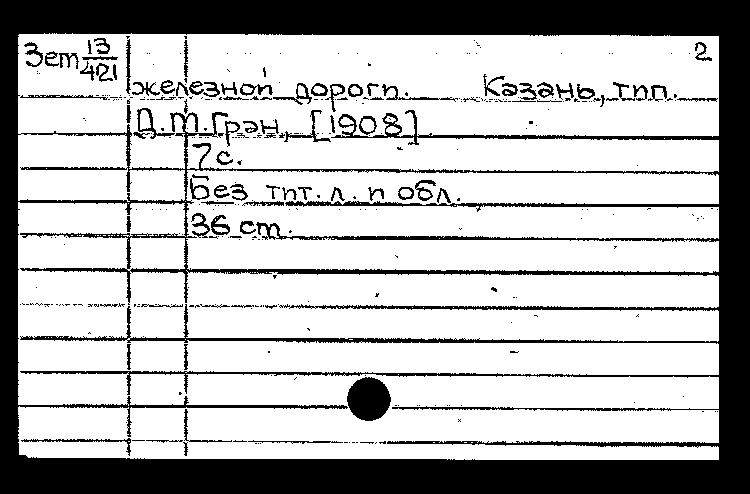 Зет 13/421 2
железной дороги. Казань, тип.
Д.М.Гран, [1908]
7 с.
Без тит. л. и обл.
36 см.